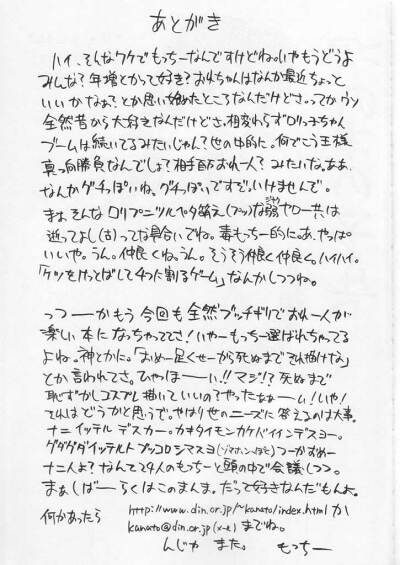 あとがき
ハイ、そんなワケでもっちーなんですけどね。いやもうどうよ
みんな?年増とかって好き?おれちゃんはなんか最近ちょっと
いいかなぁ?とか思い始めたところなんだけどさ。ってかウソ
全然昔から大好きなんだけどさ。相変わらずロリっ子ちゃん
ブームは続いてるみたいじゃん?世の中的に。何でこう王様
真っ向勝負なんでしょ?相手百万おれ一人?みたいな。ああ、
なんかグチっぽいね、グチっぽいですぞ。いけませんで。
まぁ、そんなロリプニツルペタ萌え(プッ)な弱ヤロー共は
逝ってよし(古)ってな具合いでね。毒もっちー的に。あ、やっぱ
いいや。うん。仲良くね。うん。そうそう仲良く仲良く。ハイハイ。
「ケツをけっとばして4つに割るゲーム」なんかしつつね。
っつーーかもう今回も全然ブッチギリでおれ一人が
楽しい本になっちゃっててさ!いやーもっちー選ばれちゃってる
よね。神とかに。「おめー足くせーから死ぬまでそれ描けな」
とか言われてさ。ひゃっほーーい!!マジ!?死ぬまで
恥ずかしコスプレ描いていい?やったぁぁーム!いや!
それはどうかと思うで。やはり世のニーズに答えるのは大事。
ナニイッテルデスカー。カキタイモンカケバイインデスヨー。
グダグダイッテルトブッコロシマスヨ つーかおめー
ナニ人よ?なんて24人のもっちーと頭の中で会議しつつ。
まぁしばーらくはこのまんま。だって好きなんだもんよ。
何かあったら http://www.din.or.jp/~kanato/index.html か
kanato@din.or.jp (メール) までね。
んじゃ また。 もっちー